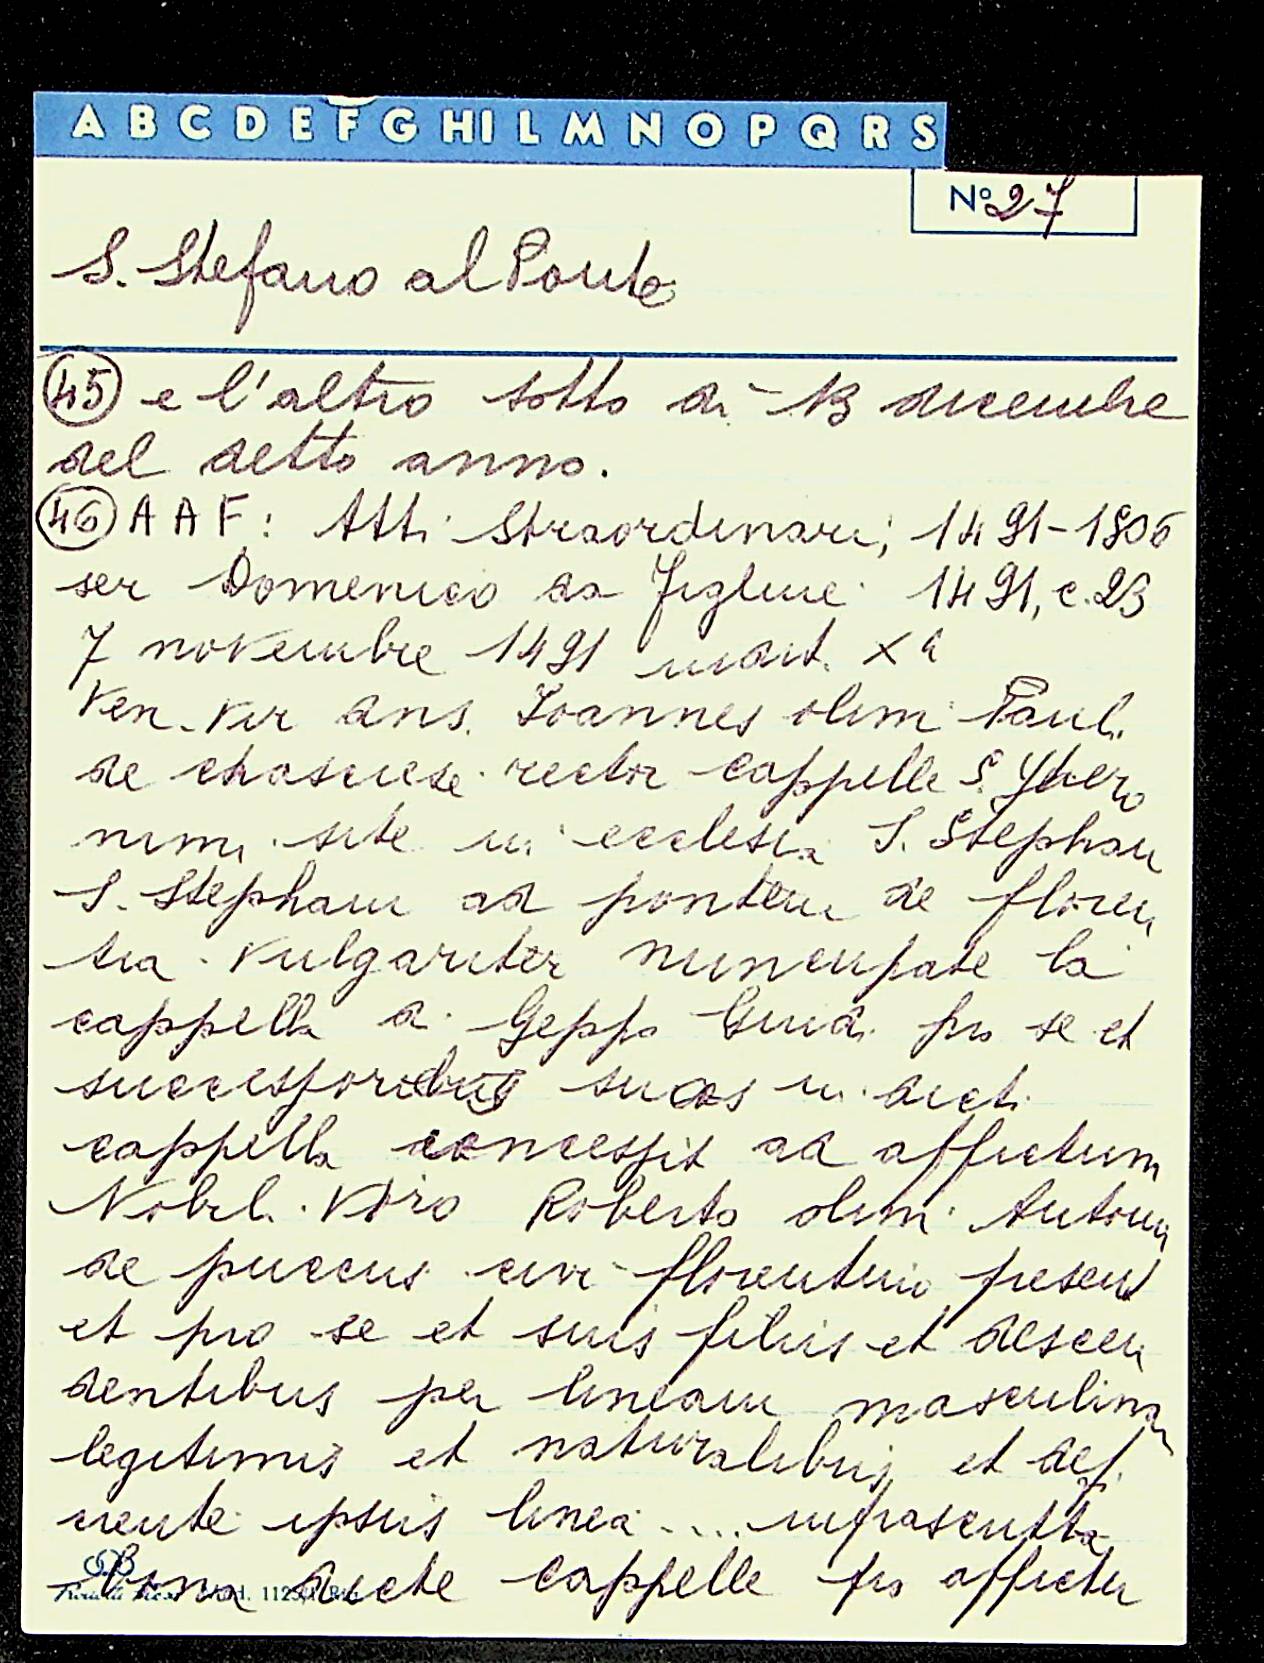 A B C D E F G H I L M N O P Q R S
N° 27
S. Stefano al Ponte
45 e l'altro sotto dì 13 dicembre
del detto anno.
46 A A F: Atti Straordinari; 1491-1806
ser Domenico da Figline 1491, c. 23
7 novembre 1491 ind. Xa
Ven. Vir dns. Joannes olim Paul.
de chascese rector cappelle S. Yhero
nimi site in ecclesia S. Stephani
S. Stephani ad pontem de floren
tia vulgariter nuncupate la
cappella di Geppo pro se et
successoribus suos in dict.
cappella concessit ad affictum
Nobil. Viro Roberto olim Antonii
de puccis civi florentino present
et pro se et suis filiis et descen
dentibus per lineam masculinam
legitimis et naturalibus et defi
ciente ipsius linea .... infrascritta
bona dicte cappelle pro affictu